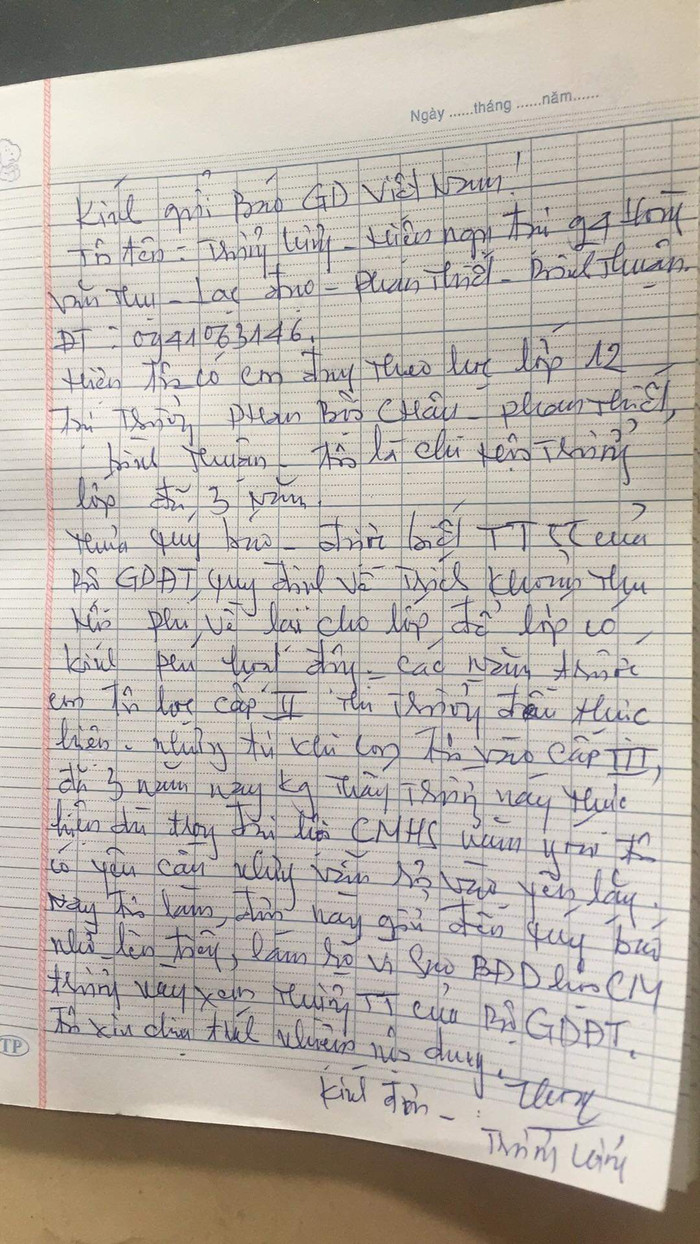 Ngày ......tháng ......năm......
Kính gửi Báo GD Việt Nam!
Tôi tên: Thùy - Hiện ngụ tại 94
Văn Thụ - Lạc đạo - Phan Thiết - Bình Thuận.
ĐT: 0941063146.
Hiện Tôi có em đang theo học lớp 12
Tại Trường Phan Bội Châu - phan Thiết,
bình Thuận - Tôi là chi Trưởng
lớp đã 3 năm.
Thưa quý báo - được biết TT 55 của
Bộ GDĐT, quy định về Trích khoản thu
hội phí về lại cho lớp để lớp có
kinh phí hoạt động - các năm trước
em Tôi học cấp II Thì Trường đều thực
hiện - nhưng từ khi em Tôi vào cấp III,
đã 3 năm nay kg Thấy Trường này Thực
hiện dù trong đại hội CMHS năm Tôi
có yêu cầu nhưng vẫn vào yên lặng.
Nay Tôi làm đơn này gửi đến quý báo
nhờ lên tiếng, làm rõ vì sao BĐD hội CM
trường vậy xem Thường TT của Bộ GDĐT.
Tôi xin chịu trách nhiệm nội dung.
Kính đơn -
TP